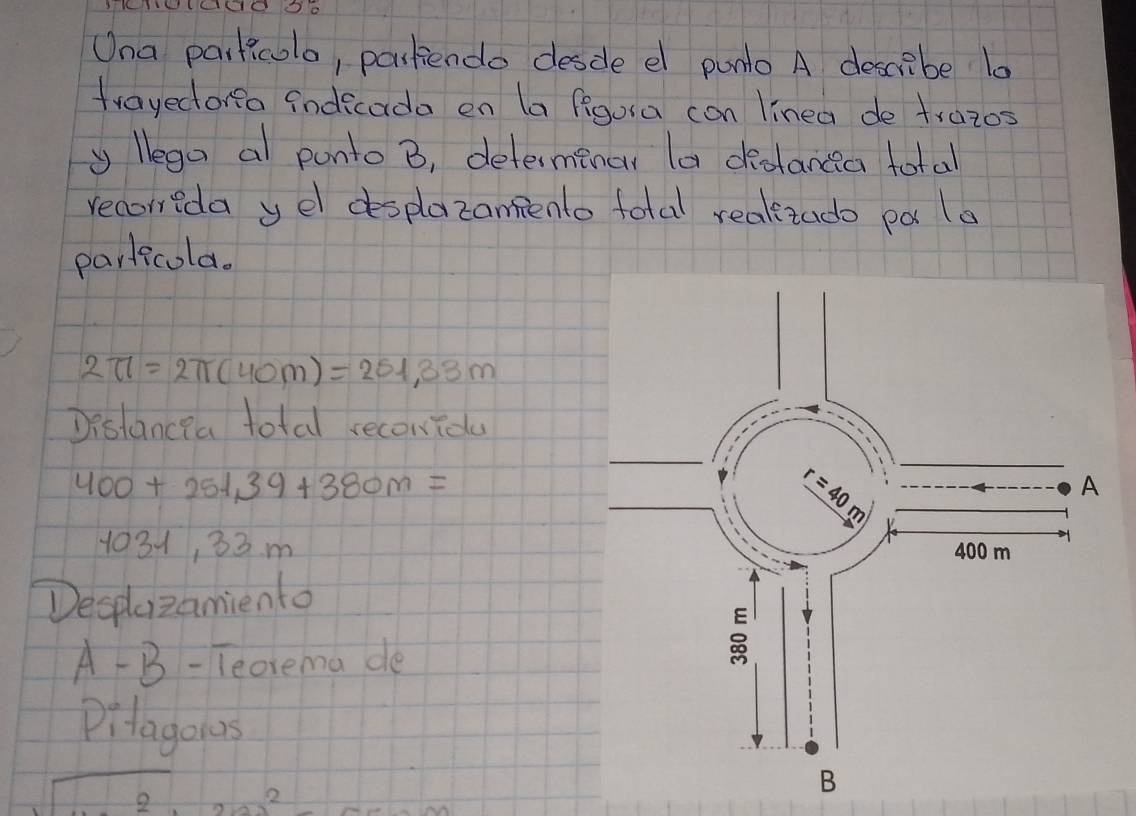 Una particula, partiendo desde el punto A describe la
trayectoria indicada en la figura con línea de trazos
y llega al punto B, determinar la distancia total
recorrida y el desplazamiento total realizado por la
particula.
2π = 2π(40m) = 251,33m
Distancia total recorrida
400 + 251,39 + 380m =
1031,33 m
Desplazamiento
A - B - Teorema de
Pitagoras
r = 40 m
A
400 m
380 m
B